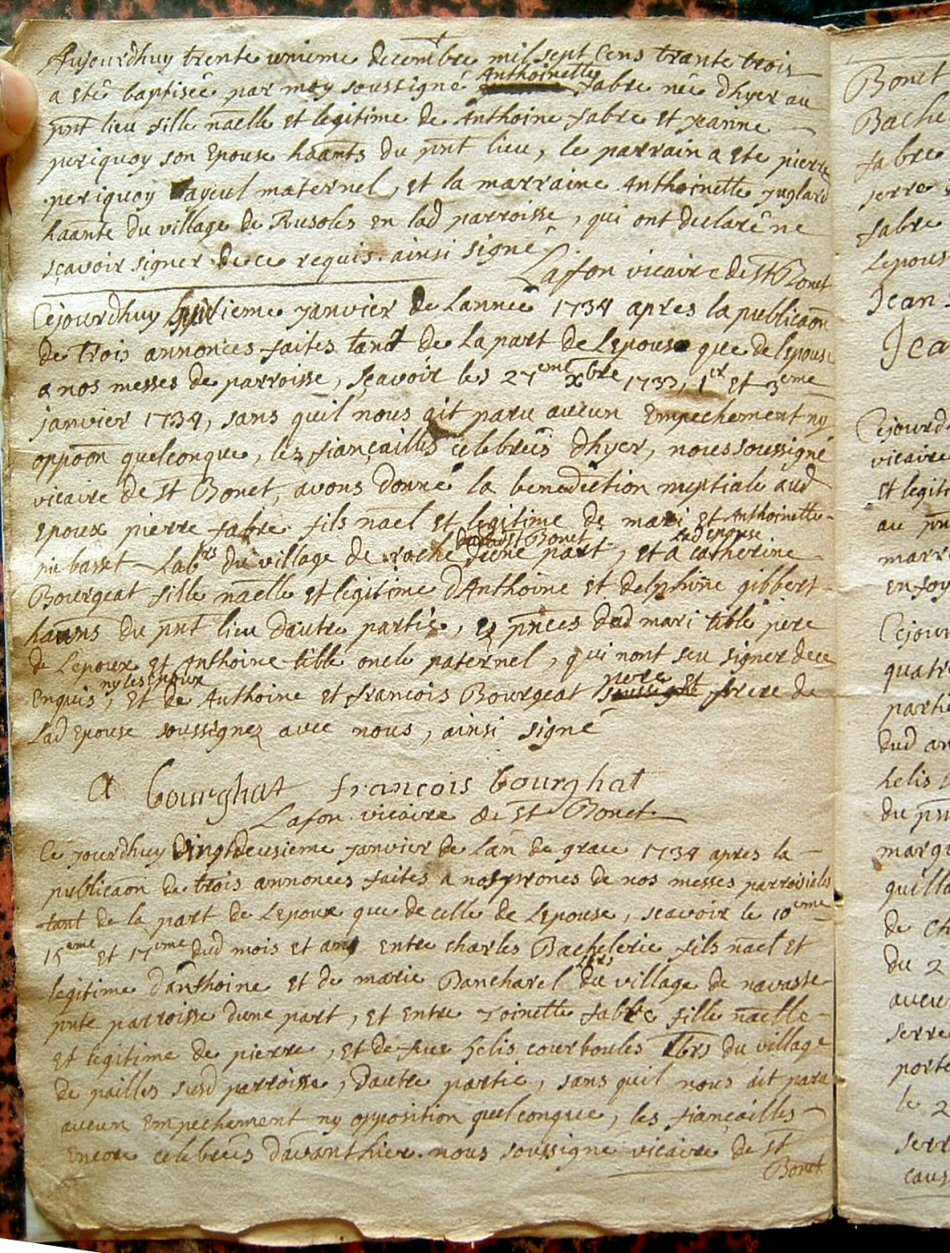 Aujourdhuy trente unieme decembre mil sept Cens trante trois
a eté baptisée par moy soussigné Anthoinette fabre née dhyer au
pnt lieu fille naelle et legitime de Anthoine fabre et Jeanne
periquoy son Epouse haants du pnt lieu, le parrain a ete pierre
periquoy ayeul maternel, et la marraine Anthoinette Juglard
haante du village de Rusoles en lad parroisse, qui ont declaré ne
sçavoir signer de ce requis. ainsi signé
Lafon vicaire de St Bonet
Cejourdhuy huitieme janvier de lannee 1734 apres la publicaon
de trois annonces faites tant de la part de Lepoux que de lepouse
a nos messes de parroisse, sçavoir les 27eme xbre 1733, 1er et 3eme
janvier 1734, sans quil nous ait paru aucun Empechement ny
oppoon quelconque, les fiançailles celebreés dhyer, nous soussigné
vicaire de St Bonet, avons donné la benediction nuptiale aud
Epoux pierre fabre fils nael et legitime de mari et Anthoinette
basset Labrs du village de roche St Bonet dune part, et a Catherine Led epouse
Bourgeat fille naelle et legitime d'Anthoine et delphine gibbert
haants du pnt lieu dautre partie, Es pnces dud mari tible pere
de Lepoux et Anthoine tible oncle paternel, qui nont seu signer de ce
Enquis, ny les Epoux Et de Anthoine et francois Bourgeat pere Et frere de
Lad Epouse soussignez avec nous, ainsi signé
A bourghat francois bourghat
Lafon vicaire de St Bonet
Ce jourdhuy vingt deusieme janvier de Lan de grace 1734 apres la
publicaon de trois annonces faites a nos prones de nos messes parroisiales
tant de la part de Lepoux que de celle de Lepouse, scavoir le 10eme
15eme et 17eme dud mois et an, entre charles Bachelerie fils nael et
legitime d'anthoine et de marie Bancharel du village de navaste
pnte parroisse dune part, et entre Toinette fabre fille naelle
et legitime de pierre, et de feue helis courboules Lbrs du village
de pailles susd parroisse, dautre partie, sans quil nous ait paru
aucun Empechement ny opposition quelconque, les fiançailles
Encore celebreés davant hier nous soussigné vicaire de St
Bonet
Bonet
Bache
fabre
serre
fabre
Lepous
Jean
Jea
Cejourd
vicaire
et legit
au pn
marr
en foy
Cejour
quatr
partie
dud an
helis
du pn
marqu
quilla
de Ch
du 2
aucu
serre
porte
le 2
serr
caus